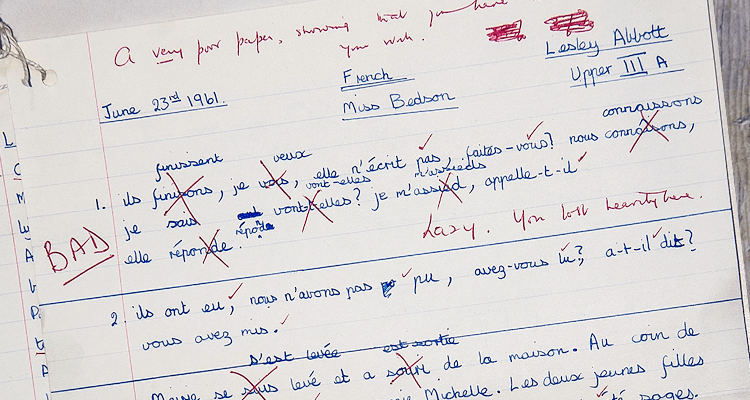 A very poor paper, showing that you have
your work.
Lesley Abbott
French
Upper III A
June 23rd 1961.
Miss Bedson
connaissons
finissent veux
1. ils finisons, je vois, elle n'écrit pas, faites-vous? nous connâisons,
vont-elles m'assieds
je sais vont-elles? je m'assied, appelle-t-il
BAD
elle réponde.
Lazy. You lost heavily here.
2. ils ont eu, nous n'avons pas pu, avez-vous lu? a-t-il dit?
vous avez mis.
s'est levée est sortie
se levé et a de la maison. Au coin de
Michelle. Les deux jeunes filles
sages.